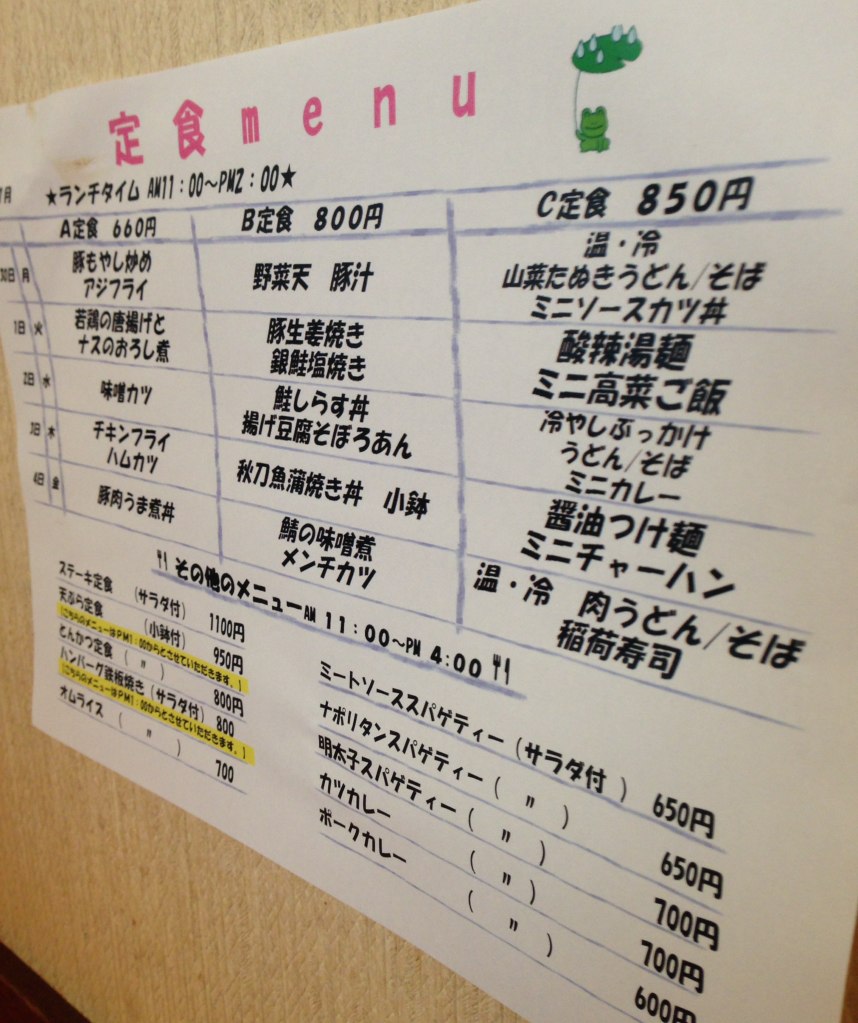 定食menu
7月 ★ランチタイム AM11:00～PM2:00★
A定食 660円 B定食 800円 C定食 850円
30日 月
豚もやし炒め
アジフライ
野菜天 豚汁
温・冷
山菜たぬきうどん/そば
ミニソースカツ丼
1日 火
若鶏の唐揚げと
ナスのおろし煮
豚生姜焼き
銀鮭塩焼き
酸辣湯麺
ミニ高菜ご飯
2日 水
味噌カツ
鮭しらす丼
揚げ豆腐そぼろあん
冷やしぶっかけ
うどん/そば
ミニカレー
3日 木
チキンフライ
ハムカツ
秋刀魚蒲焼き丼 小鉢
醤油つけ麺
ミニチャーハン
4日 金
豚肉うま煮丼
鯖の味噌煮
メンチカツ
温・冷 肉うどん/そば
稲荷寿司
その他のメニュー AM 11:00～PM 4:00
ステーキ定食 (サラダ付) 1100円
天ぷら定食 (小鉢付) 950円
(こちらのメニューはPM1:00からとさせていただきます。)
とんかつ定食 ( 〃 ) 800円
ハンバーグ鉄板焼き (サラダ付) 800
(こちらのメニューはPM1:00からとさせていただきます。)
オムライス ( 〃 ) 700
ミートソーススパゲティー (サラダ付) 650円
ナポリタンスパゲティー ( 〃 ) 650円
明太子スパゲティー ( 〃 ) 700円
カツカレー ( 〃 ) 700円
ポークカレー ( 〃 ) 600円